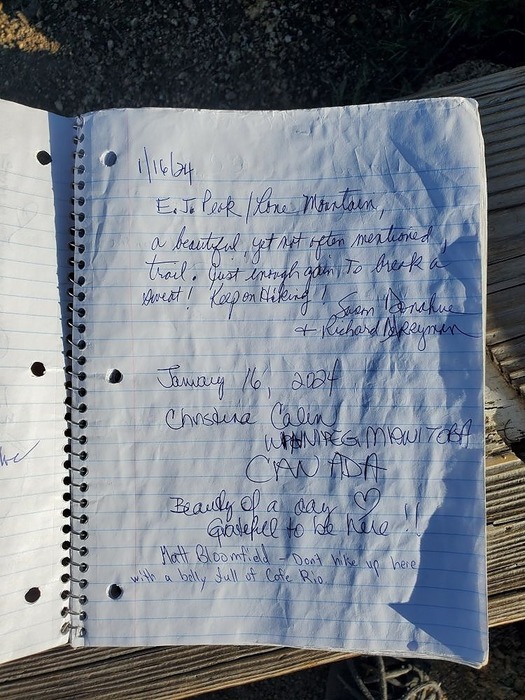 1/16/24
E.J. Peak / Lone Mountain,
a beautiful, yet not often mentioned
trail. Just enough gain, to break a
sweat! Keep on Hiking!
Donahue
+ Richard Berryman
January 16, 2024
Christina Calin
WINNIPEG MANITOBA
CANADA
Beauty of a day ♡
Grateful to be here !!
Matt Bloomfield - Dont hike up here
with a belly full of Cafe Rio